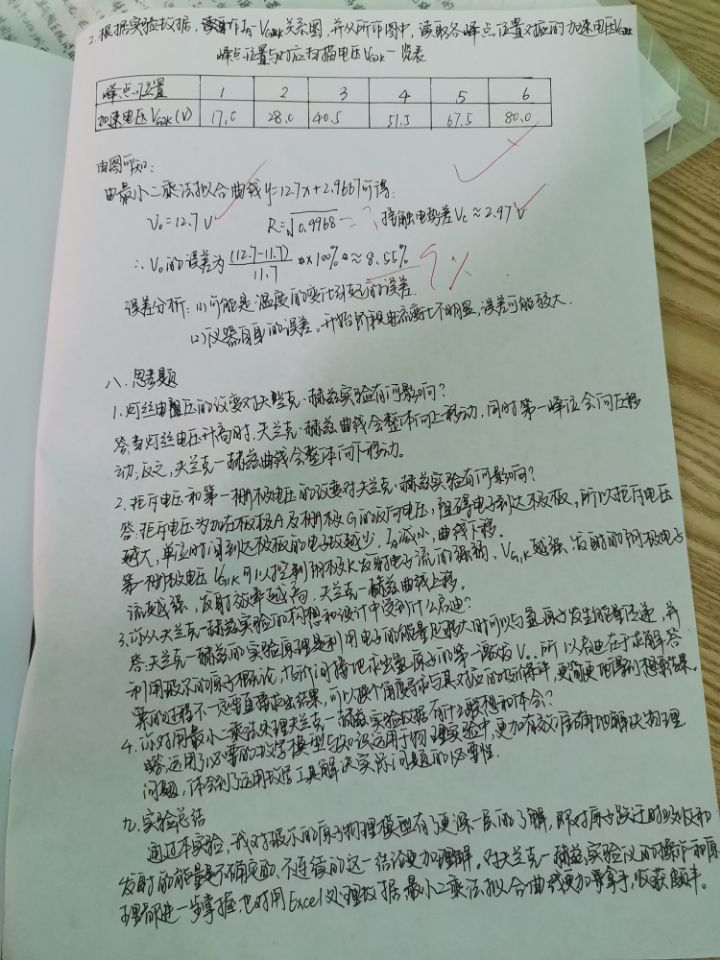 2.根据实验数据,作IA-VG2K关系图,并从所作图中,读取各峰点位置对应的加速电压VG2K
峰点位置与对应扫描电压VG2K一览表
峰点位置 1 2 3 4 5 6
加速电压VG2K(V) 17.0 28.0 40.5 51.5 67.5 80.0
由图可知:
由最小二乘法拟合曲线y=12.7x+2.9667可得:
V₀=12.7V R=√0.9968 =? 接触电势差Vc≈2.97V
∴V₀的误差为 (12.7-11.7)/11.7 ×100%≈8.55% 9%
误差分析:(1)可能是温度的变化引起的误差.
(2)仪器自身的误差。开始阶段电流变化不明显,误差可能较大.
八.思考题
1.灯丝电压的改变对夫兰克-赫兹实验有何影响?
答:当灯丝电压升高时,夫兰克-赫兹曲线会整体向上移动,同时第一峰位会向左移
动,反之,夫兰克-赫兹曲线会整体向下移动。
2.拒斥电压和第一栅极电压的改变对夫兰克-赫兹实验有何影响?
答:拒斥电压为加在极板A及栅极G的反向电压,阻碍电子到达极板,所以拒斥电压
越大,单位时间到达极板的电子数越少,IA减小,曲线下移.
第一栅极电压VG1K可以控制阴极K发射电子流的强弱、VG1K越强、发射的阴极电子
流越强,发射效率越高,夫兰克-赫兹曲线上移.
3.你从夫兰克-赫兹实验的构想和设计中受到什么启迪?
答:夫兰克-赫兹的实验原理是利用电子的能量足够大时可以与氩原子发生能量传递,并
利用玻尔的原子概论,巧妙间接地求出氩原子的第一激发V₀。所以启迪在于求解答
案的过程不一定要直接求出结果,可以换个角度寻求与其对应的巧妙条件,更简更能得到想要结果。
4.你对用最小二乘法处理夫兰克-赫兹实验数据有什么联想和体会?
答:运用了必要的数学模型与知识运用于物理实验中,更加有效准确地解决物理
问题,体会到了运用数学工具解决实际问题的必要性.
九.实验总结
通过本实验,我对玻尔的原子物理模型有了更深一层的了解,即对原子跃迁时吸收和
发射的能量是不确定的、不连续的这一结论更加理解。对夫兰克-赫兹实验仪的操作和原
理都进一步掌握,也对用Excel处理数据最小二乘法拟合曲线更加得拿手,收获颇丰。